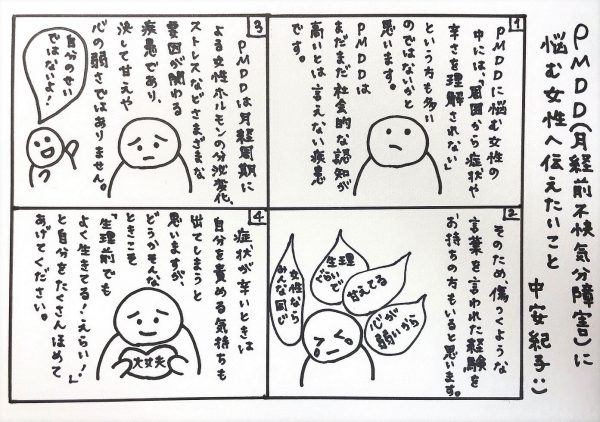 PMDD(月経前不快気分障害)に
悩む女性へ伝えたいこと
中安紀子:)
1
PMDDに悩む女性の
中には「周囲から症状や
辛さを理解されない」
という方も多い
のではないかと
思います。
PMDDは
まだまだ社会的な認知が
高いとは言えない疾患
です。
2
そのため、傷つくような
言葉を言われた経験を
お持ちの方もいると思います。
心が
弱いから
甘えてる
生理
くらいで
女性なら
みんな同じ
3
PMDDは月経周期に
よる女性ホルモンの分泌変化、
ストレスなどさまざまな
要因が関わる
疾患であり、
決して甘えや
心の弱さではありません。
自分のせい
ではないよ!
4
症状が辛いときは
自分を責める気持ちも
出てしまうと
思いますが、
どうかそんな
ときこそ
「生理前でも
よく生きてる!えらい!」
と自分をたくさんほめて
あげてください。
大丈夫